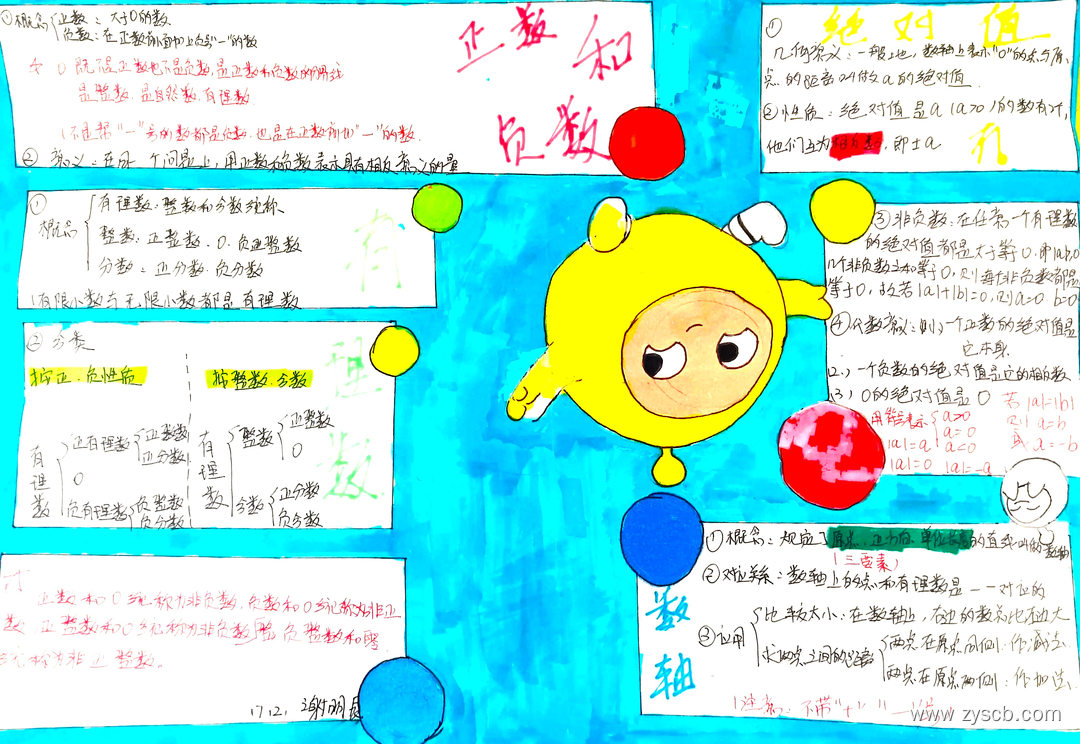 正数和
负数
①概念 正数：大于0的数
负数：在正数前面加上负号"一"的数
0 既不是正数也不是负数，是正数和负数的分界线
是整数，是自然数，有理数
(不是带"一"号的数都是负数，也是在正数前加"一"的数.
② 意义：在同一个问题上，用正数和负数表示具有相反意义的量
有
理
数
①概念 有理数：整数和分数统称
整数：正整数、0、负正整数
分数：正分数、负分数
(有限小数与无限小数都是有理数
② 分类
按正、负性质
有理数
正有理数 正整数
正分数
0
负有理数 负整数
负分数
按整数、分数
有理数
整数 正整数
0
分数 正分数
负分数
正数和0统称为非负数，负数和0统称为非正
数 正整数和0统称为非负数整 负整数和
统称为非正整数。
17.12.
绝对值
①几何意义：一般地，数轴上表示"a"的点与原
点的距离叫做a的绝对值
②性质：绝对值是a(a>0)的数有2个，
他们互为相反数，即±a
③非负数：在任意一个有理数
的绝对值都是大于等于0，即|a|≥0
几个非负数之和等于0，则每个非负数都是
等于0，故若|a|+|b|=0，则a=0 b=0
④代数意义：(1)一个正数的绝对值是
它本身
(2)一个负数的绝对值是它的相反数
(3)0的绝对值是0
a>0
a=0
a<0
|a|=a
|a|=0 |a|=-a
若|a|=|b|
则a=b
或a=-b
数
轴
①概念：规定了原点、正方向、单位长度的直线叫的数轴
(三要素)
②对应关系：数轴上的点和有理数是一一对应的
③应用 比较大小：在数轴上，右边的数总比左边大
求两点之间的距离 两点在原点同侧：作减法
两点在原点两侧：作加法
(注意：不带"+""一"号
www.zyscb.com